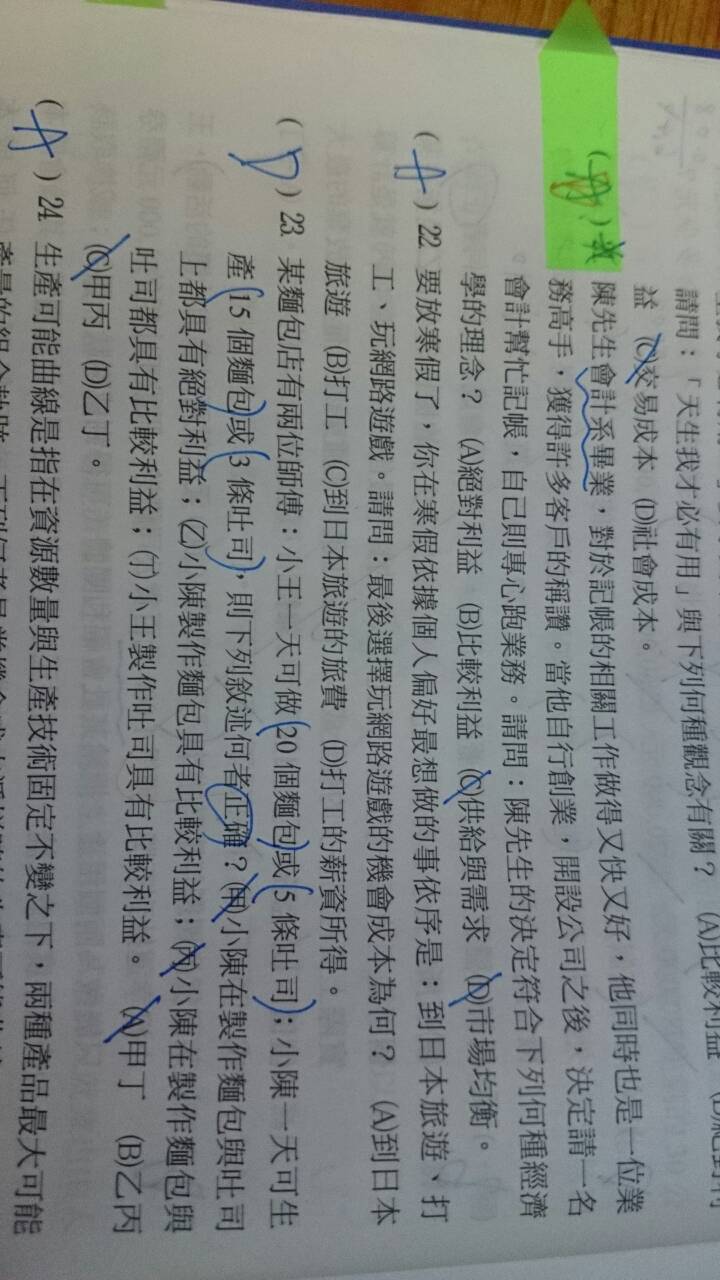 請問：「天生我才必有用」與下列何種觀念有關？ (A)比較利益
益 (C)交易成本 (D)社會成本。
陳先生會計系畢業，對於記帳的相關工作做得又快又好，他同時也是一位業
務高手，獲得許多客戶的稱讚。當他自行創業，開設公司之後，決定請一名
會計幫忙記帳，自己則專心跑業務。請問：陳先生的決定符合下列何種經濟
學的理念？ (A)絕對利益 (B)比較利益 (C)供給與需求 (D)市場均衡。
( A ) 22. 要放寒假了，你在寒假依據個人偏好最想做的事依序是：到日本旅遊、打
工、玩網路遊戲。請問：最後選擇玩網路遊戲的機會成本為何？ (A)到日本
旅遊 (B)打工 (C)到日本旅遊的旅費 (D)打工的薪資所得。
( D ) 23. 某麵包店有兩位師傅：小王一天可做 20 個麵包或 5 條吐司；小陳一天可生
產 15 個麵包或 3 條吐司，則下列敘述何者正確？(甲)小陳在製作麵包與吐司
上都具有絕對利益；(乙)小陳製作麵包具有比較利益；(丙)小陳在製作麵包與
吐司都具有比較利益；(丁)小王製作吐司具有比較利益。 (A)甲丁 (B)乙丙
(C)甲丙 (D)乙丁。
( A ) 24. 生產可能曲線是指在資源數量與生產技術固定不變之下，兩種產品最大可能